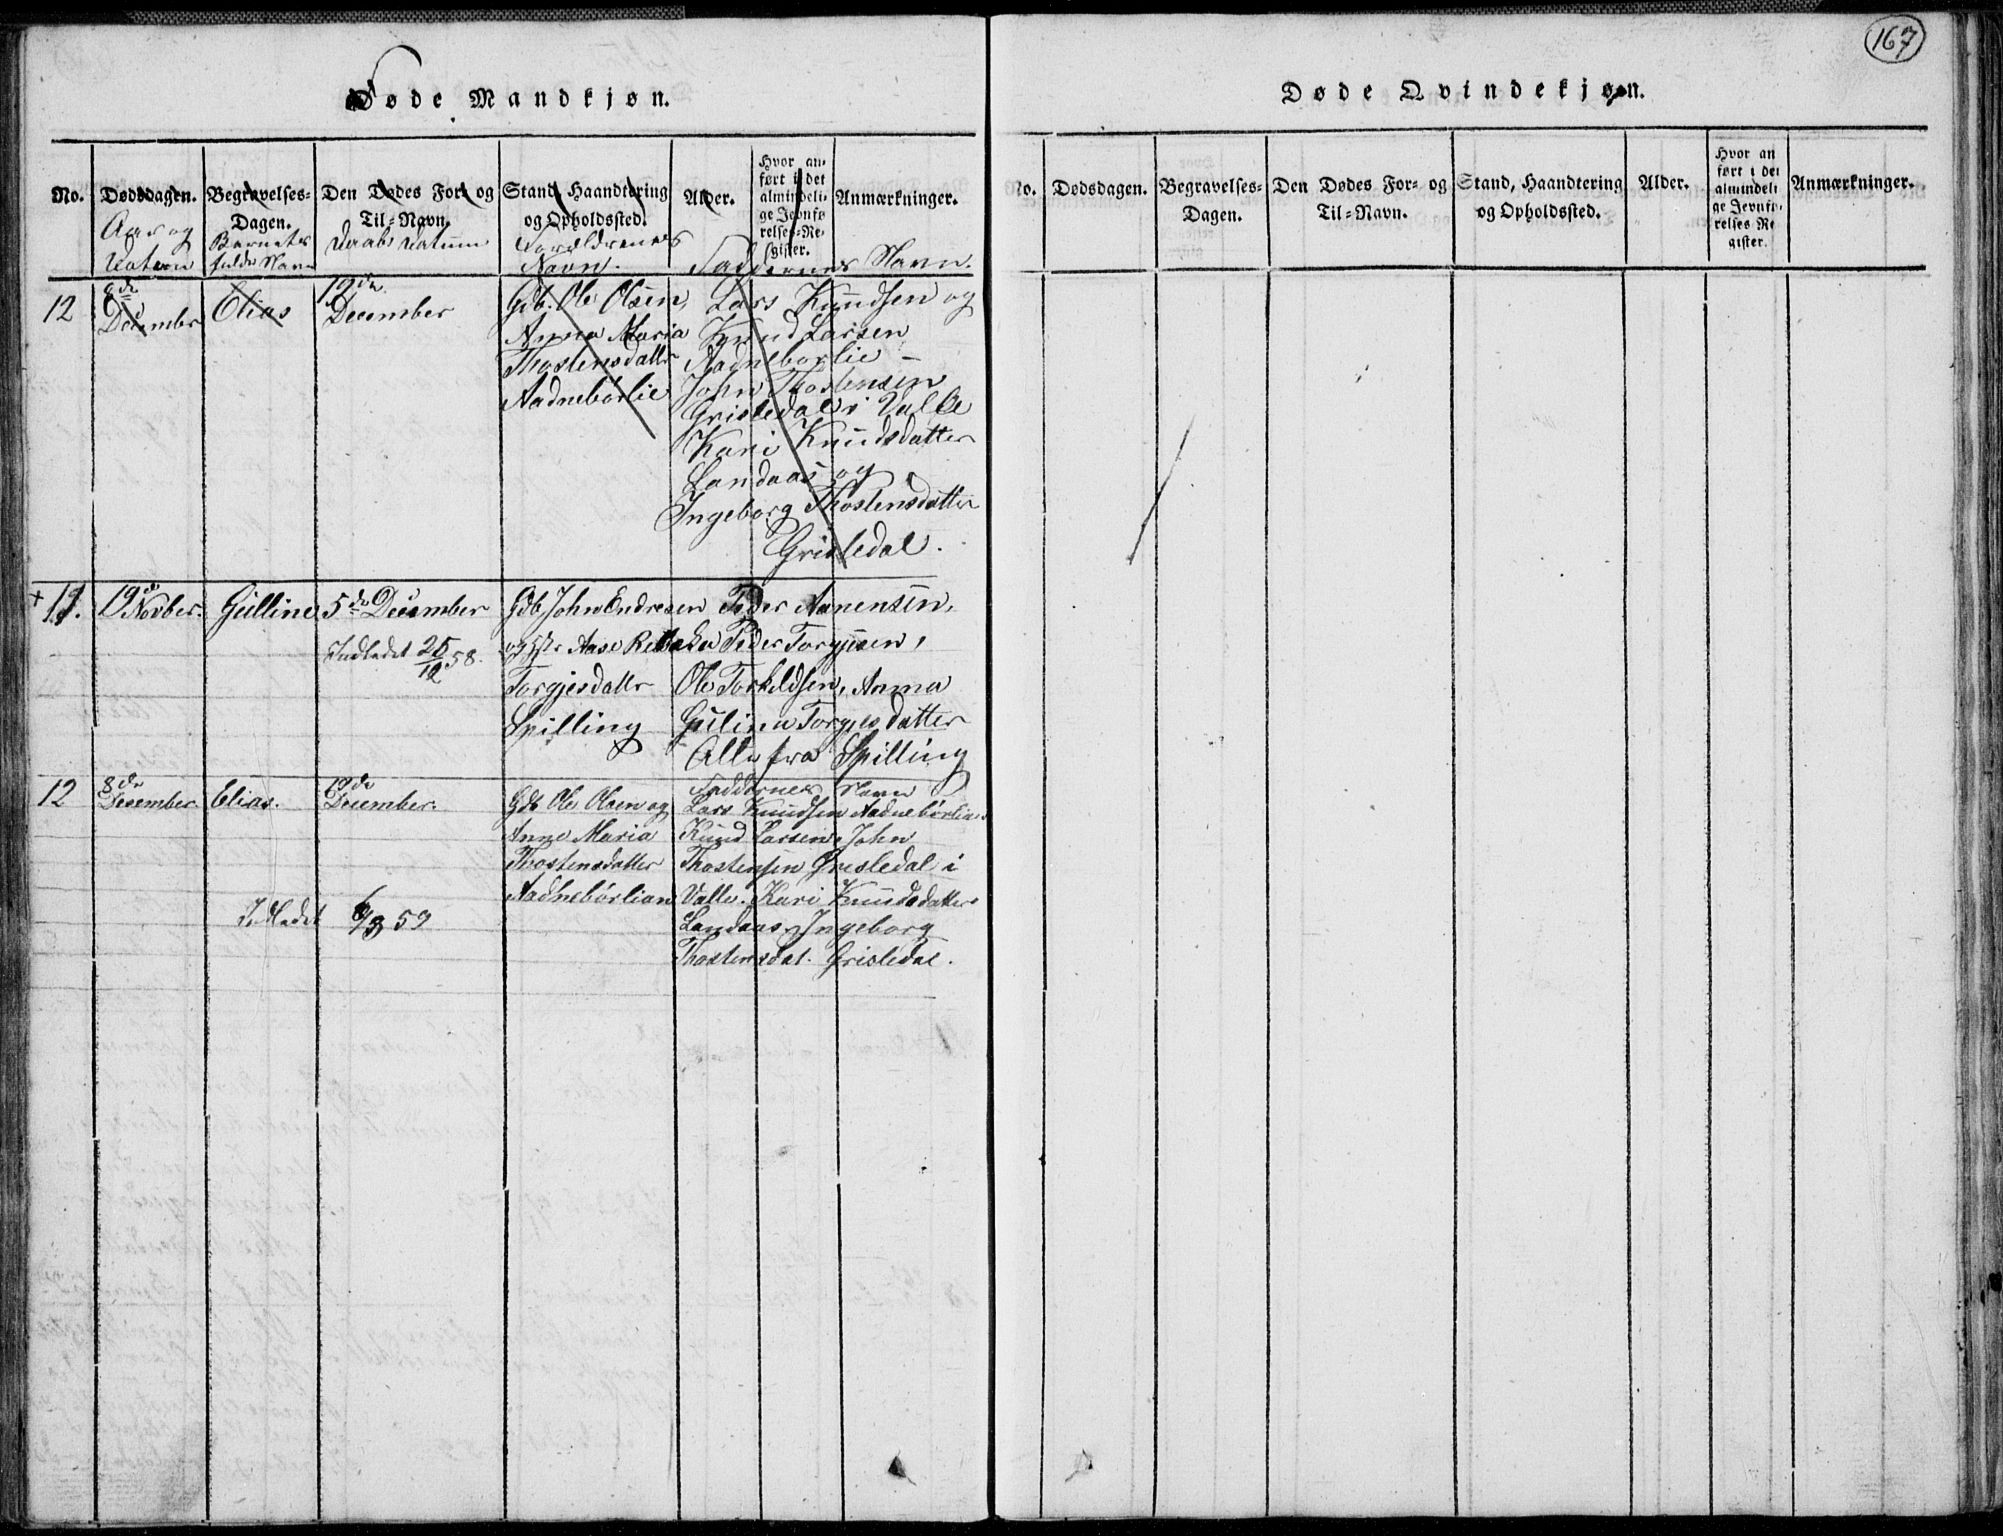 167
Døde Mandkjøn.
No. Dødsdagen. Begravelses-Dagen. Den Dødes For- og Til-Navn. Stand, Haandtering og Opholdssted. Alder. Hvor anført i det almindelige Jevnførelses-Register. Anmærkninger.
Aar og Datum
Barnets fulde Navn
Daabs Datum
Forældrenes Navn.
Faddernes Navn.
12
8de December
Elias
19de December
Gdb. Ole Olsen,
Anna Maria
Thostensdattr
Aadnebørlie
Lars Knudsen og
Knud Larsen
Aadneborlie –
John Thostensen
Grisledal i Valle
Kari Knudsdatter
Landaas og
Ingeborg Thostensdatter
Grisledal.
+ 11.
19de Novber.
Gulline
5de December
Indledet 25/12 58.
Gdb. John Endresen
og Hstr Aase Rebekka
Torgjesdattr
Spilling
Peder Aanensen,
Peder Torgjesen,
Ole Torkildsen, Anna
Gulina Torgjesdatter
Alle fra Spilling
12
8de Desember
Elias.
19de December.
Indledet 6/3 59
Gdb Ole Olsen og
Anne Maria
Thostensdatter
Aadnebørlian
Faddernes Navn
Lars Knudsen Aadnebørlian
Knud Larsen, John
Thostensen Grisledal i
Valle. Kari Knudsdatter
Landaas, Ingeborg
Thostensdat. Grisledal.
Døde Qvindekjøn.
No. Dødsdagen. Begravelses-Dagen. Den Dødes For- og Til-Navn. Stand, Haandtering og Opholdssted. Alder. Hvor anført i det almindelige Jevnførelses-Register. Anmærkninger.